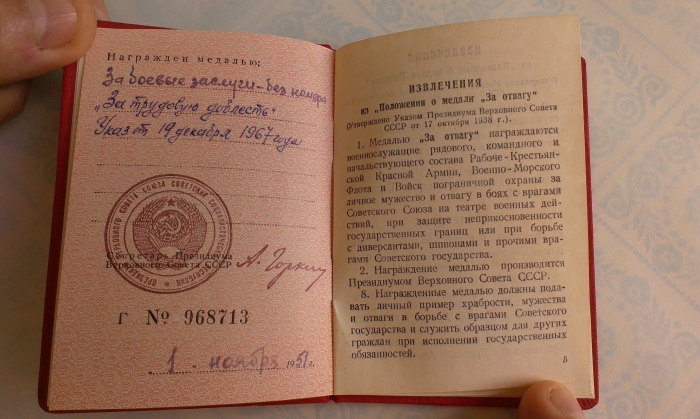 Награжден медалью:
За боевые заслуги-без номера
„За трудовую доблесть"
Указ от 19 декабря 1967 года
Секретарь Президиума
Верховного Совета СССР А. Горкин
Г № 968713
„ 1 " ноября 1951 г.
ИЗВЛЕЧЕНИЯ
из „Положения о медали „За отвагу"
(Утверждено Указом Президиума Верховного Совета
СССР от 17 октября 1938 г.).
1. Медалью „За отвагу" награждаются
военнослужащие рядового, командного и
начальствующего состава Рабоче-Крестьян-
ской Красной Армии, Военно-Морского
Флота и Войск пограничной охраны за
личное мужество и отвагу в боях с врагами
Советского Союза на театре военных дей-
ствий, при защите неприкосновенности
государственных границ или при борьбе
с диверсантами, шпионами и прочими вра-
гами Советского государства.
2. Награждение медалью производится
Президиумом Верховного Совета СССР.
8. Награжденные медалью должны пода-
вать личный пример храбрости, мужества
и отваги в борьбе с врагами Советского
государства и служить образцом для других
граждан при исполнении государственных
обязанностей.
5